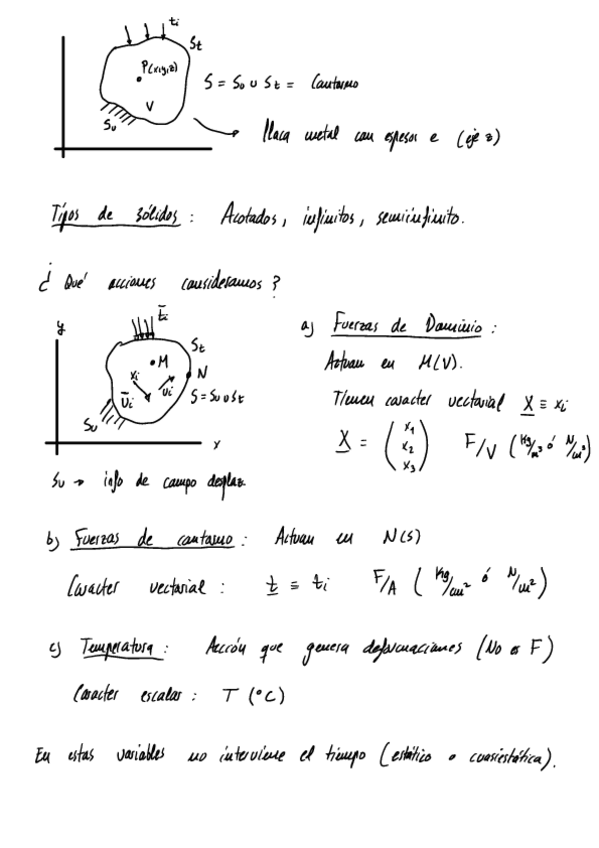 ti
St
P(x,y,z)
V
Su
S = Su ∪ St = Contorno
Placa metal con espesor e (eje z)
Tipos de sólidos : Acotados, infinitos, semiinfinito.
¿ Qué acciones consideramos ?
y
t̄i
St
M
N
Xi
ui
ūi
S = Su ∪ St
Su
x
Su → info de campo desplaz.
a) Fuerzas de Dominio :
Actuan en M(V).
Tienen caracter vectorial X ≡ xi
X = (x1 x2 x3) F/V (Kg/m³ ó N/m³)
b) Fuerzas de contorno : Actuan en N(S)
Caracter vectorial : t ≡ ti F/A ( Kg/cm² ó N/m² )
c) Temperatura : Acción que genera deformaciones (No es F)
Caracter escalar : T (°C)
En estas variables no interviene el tiempo (estático o cuasiestática).